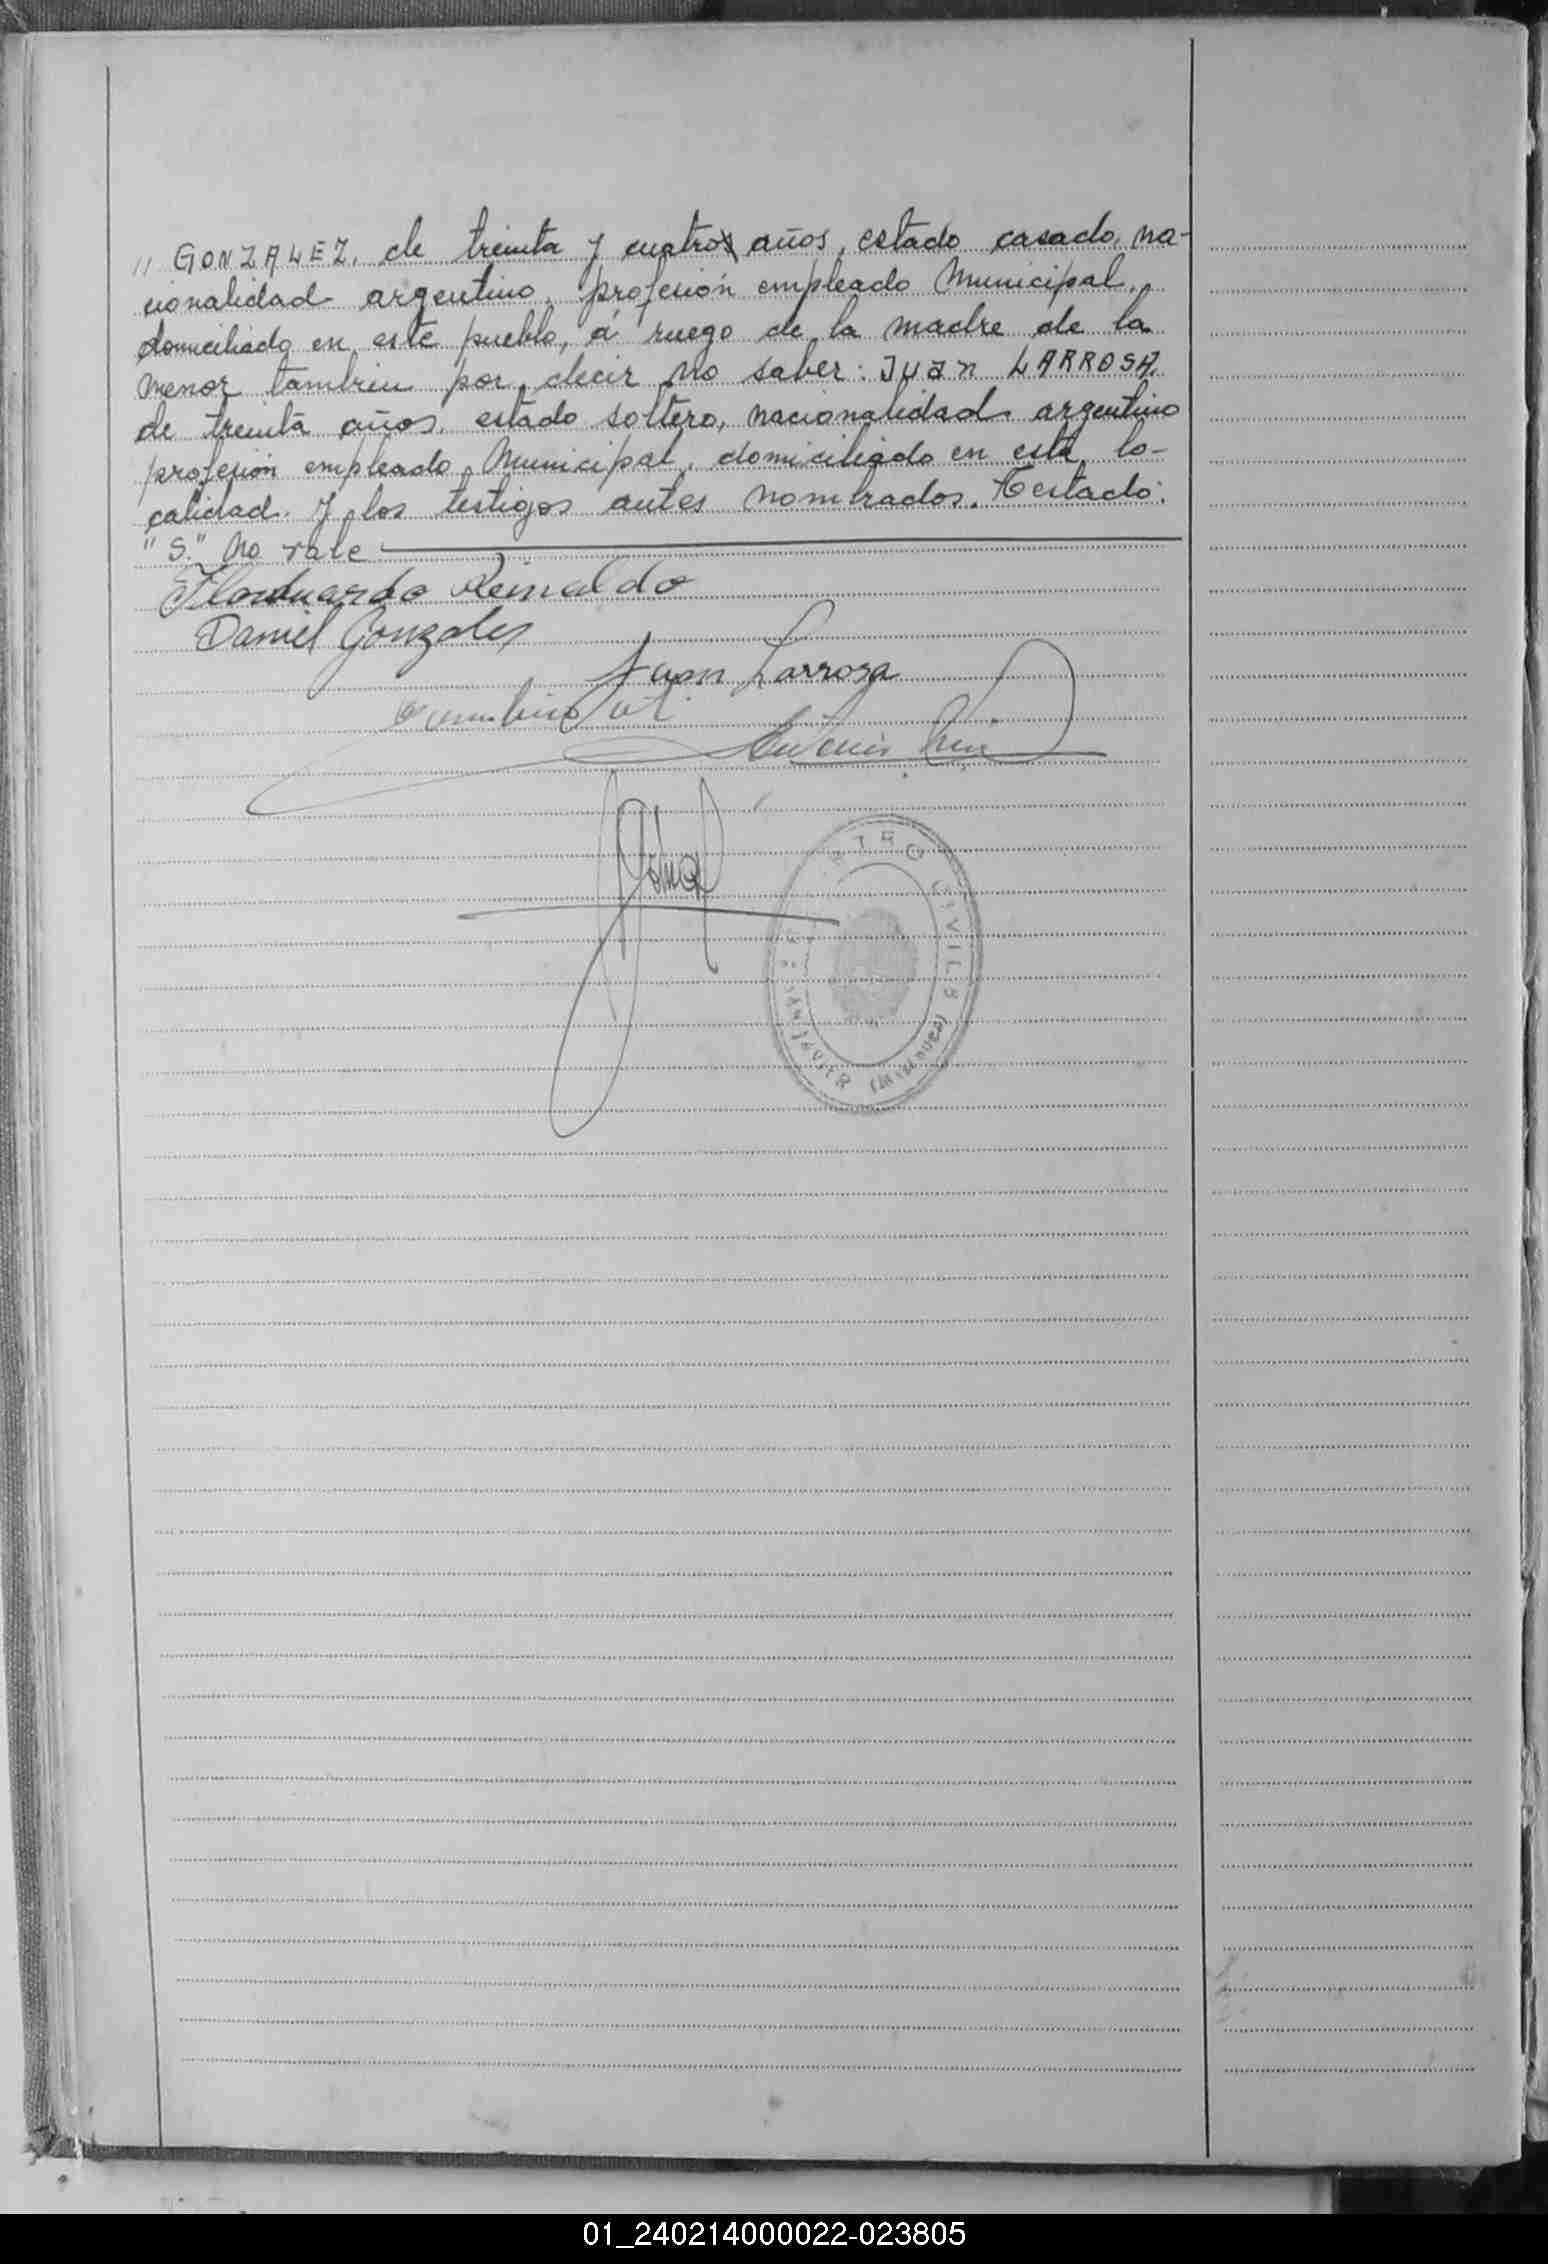 " GONZALEZ, de treinta y cuatros años, estado casado, na-
cionalidad argentino, profesión empleado Municipal,
domiciliado en este pueblo, á ruego de la madre de la
menor tambien por decir no saber: Juan LARROSA,
de treinta años, estado soltero, nacionalidad argentino
profesión empleado Municipal, domiciliado en esta lo-
calidad. y los testigos antes nombrados. Testado:
"S." No vale
Reinaldo
Daniel Gonzales
Juan Larrosa
CIVIL
SAN JAVIER (MISIONES)
01_240214000022-023805